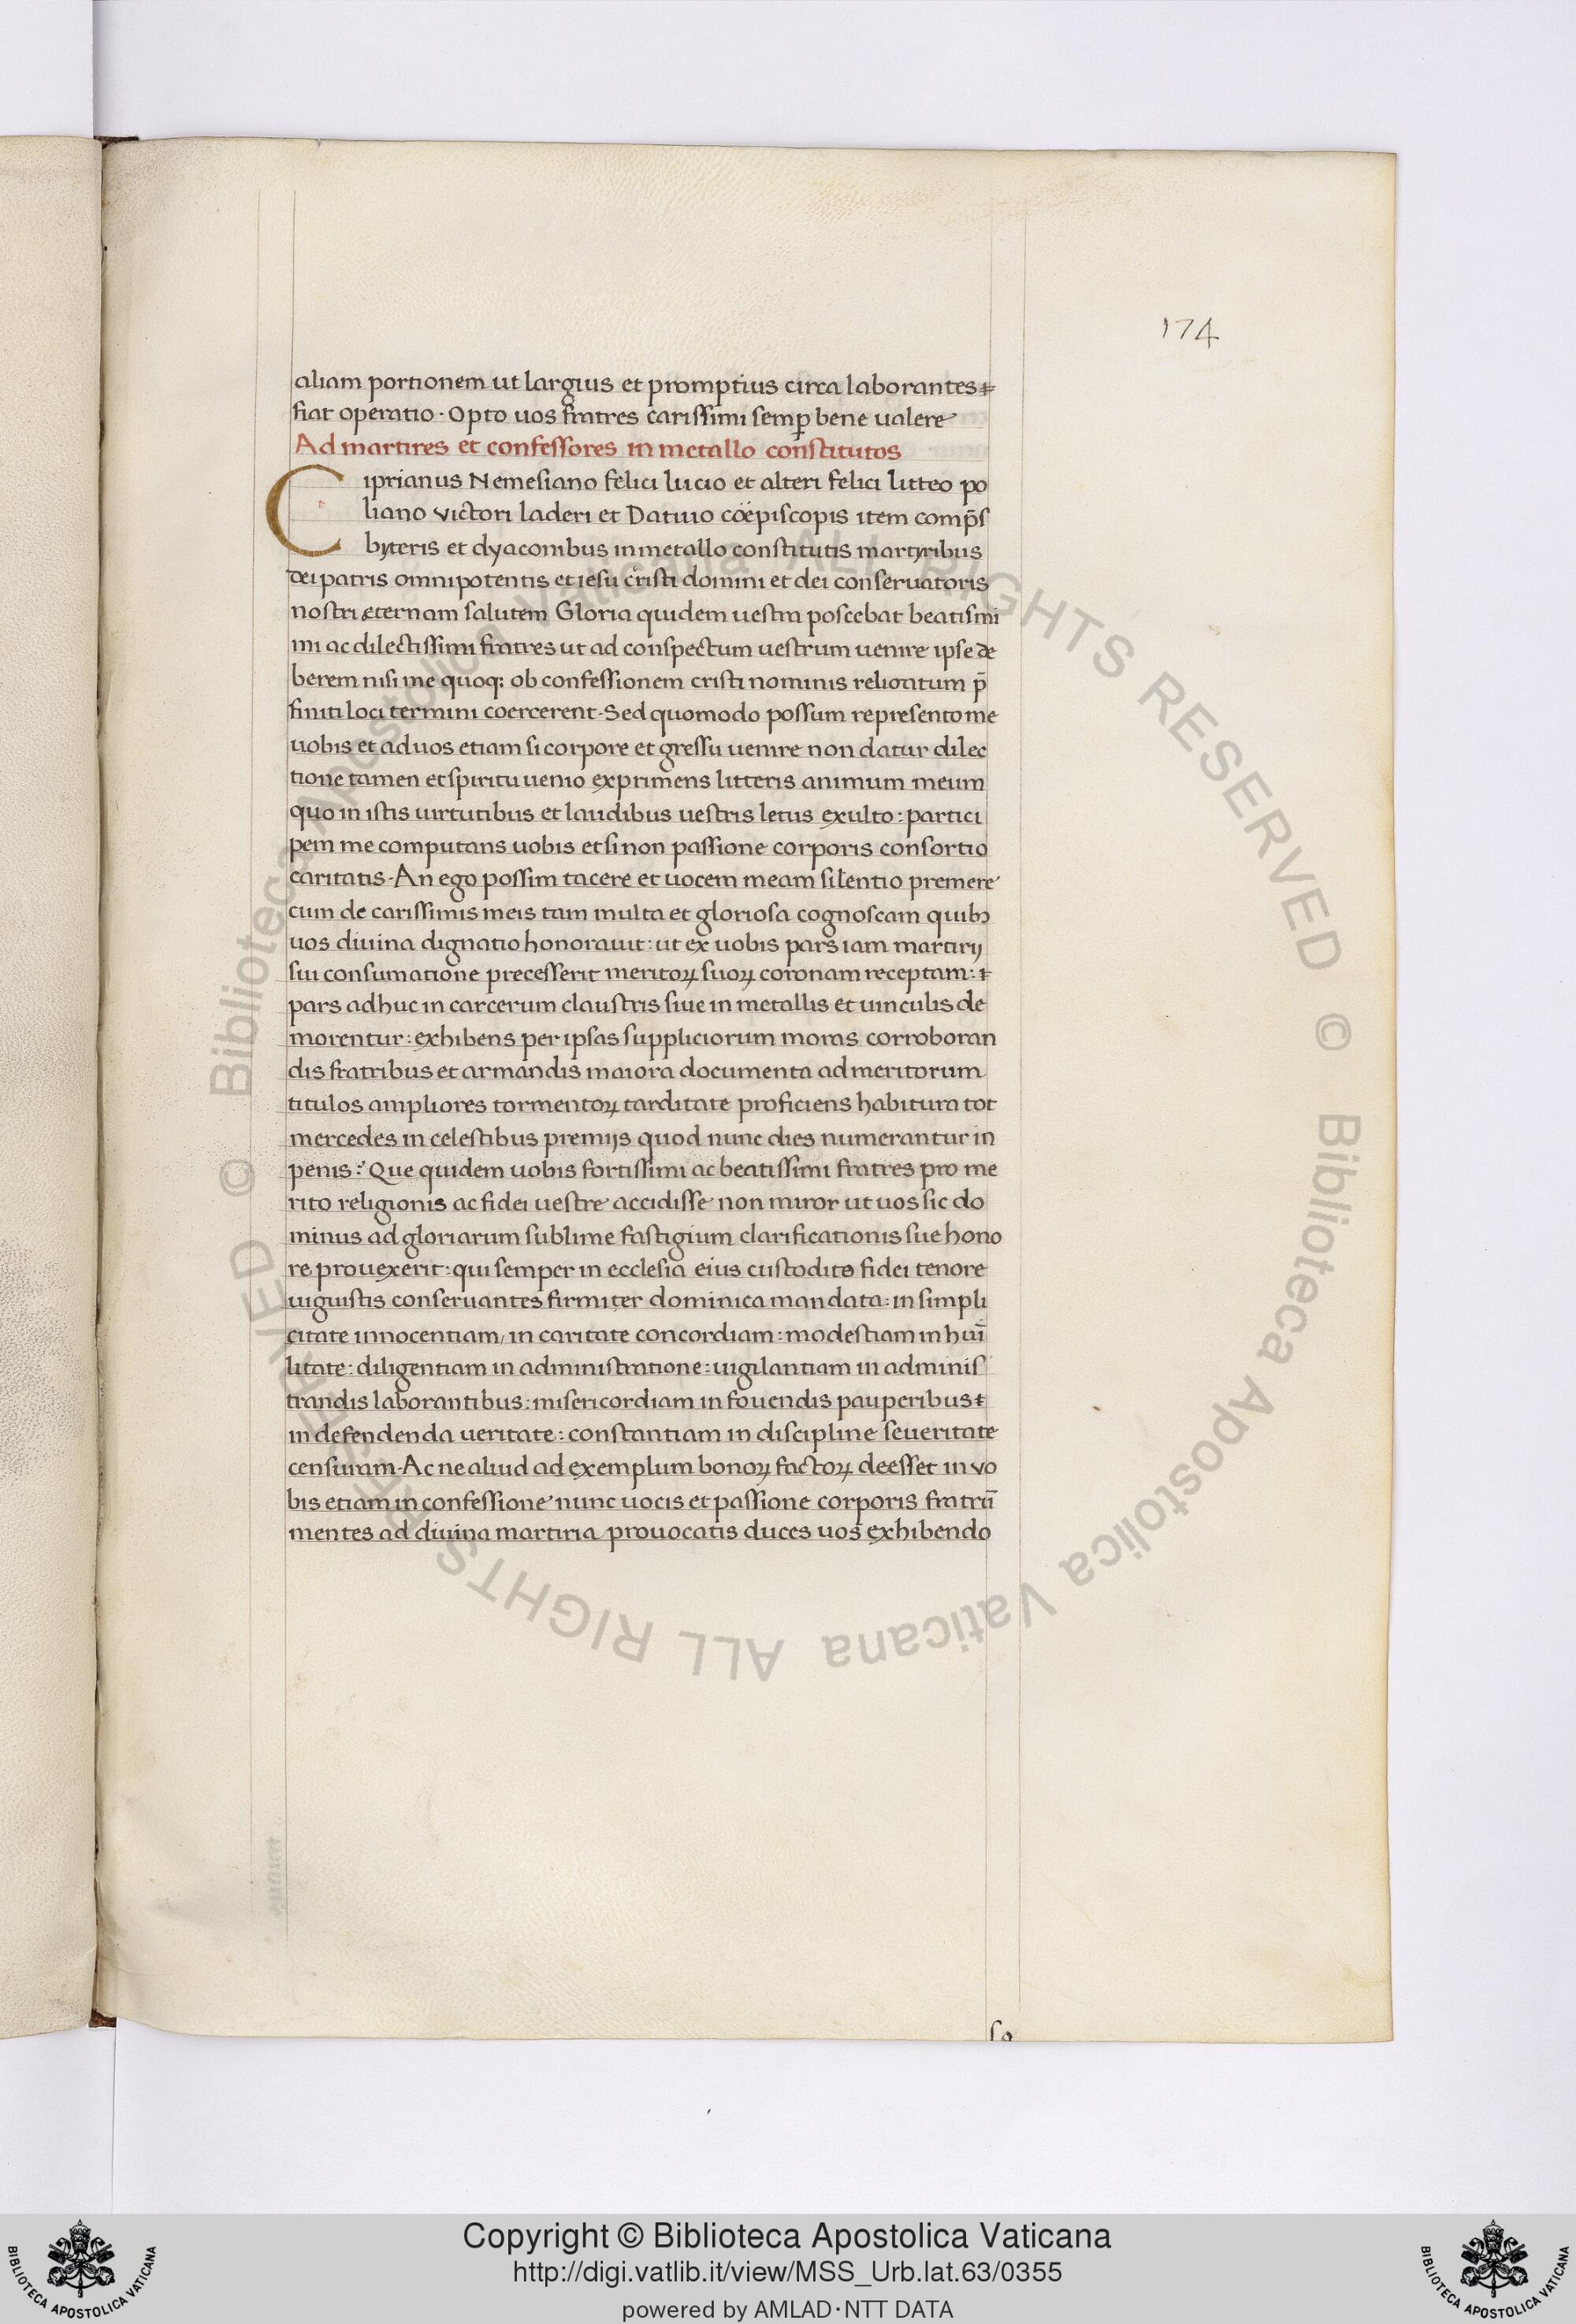 174
aliam portionem ut largius et promptius circa laborantes ҂
fiat operatio · Opto uos fratres carissimi semꝑ bene ualere
Ad martires et confessores in metallo constitutos
Ciprianus Nemesiano felici lucio et alteri felici litteo po
liano victori laderi et Datiuo coepiscopis item comp̄s
byteris et dyaconibus in metallo constitutis martyribus
dei patris omnipotentis et iesu cristi domini et dei conseruatoris
nostri ęternam salutem Gloria quidem uestra poscebat beatissimi
mi ac dilectissimi fratres ut ad conspectum uestrum uenire ipse de
berem nisi me quoq; ob confessionem cristi nominis religatum p̄
finiti loci termini coercerent · Sed quomodo possum represento me
uobis et ad uos etiam si corpore et gressu uenire non datur dilec
tione tamen et spiritu uenio exprimens litteris animum meum
quo in istis uirtutibus et laudibus uestris letus exulto : partici
pem me computans uobis et si non passione corporis consortio
caritatis · An ego possim tacere et uocem meam silentio premere
cum de carissimis meis tam multa et gloriosa cognoscam quibꝫ
uos diuina dignatio honorauit : ut ex uobis pars iam martirij
sui consumatione precesserit meritoꝝ suoꝝ coronam receptam : ⁊
pars adhuc in carcerum claustris siue in metallis et uinculis de
morentur : exhibens per ipsas suppliciorum moras corroboran
dis fratribus et armandis maiora documenta ad meritorum
titulos ampliores tormentoꝝ tarditate proficiens habitura tot
mercedes in celestibus premijs quod nunc dies numerantur in
penis : Que quidem uobis fortissimi ac beatissimi fratres pro me
rito religionis ac fidei uestre accidisse non miror ut uos sic do
minus ad gloriarum sublime fastigium clarificationis sue hono
re prouexerit : qui semper in ecclesia eius custodito fidei tenore
uiguistis conseruantes firmiter dominica mandata : in simpli
citate innocentiam / in caritate concordiam : modestiam in hui̅
litate : diligentiam in administratione : uigilantiam in adminis
trandis laborantibus : misericordiam in fouendis pauperibus ⁊
in defendenda ueritate : constantiam in discipline seueritate
censuram · Ac ne aliud ad exemplum bonoꝝ factoꝝ deesset in vo
bis etiam in confessione nunc uocis et passione corporis fratrū
mentes ad diuina martiria prouocatis duces uos exhibendo
© Biblioteca Apostolica Vaticana ALL RIGHTS RESERVED © Biblioteca Apostolica Vaticana ALL RIGHTS RESERVED
Copyright © Biblioteca Apostolica Vaticana
http://digi.vatlib.it/view/MSS_Urb.lat.63/0355
powered by AMLAD·NTT DATA
BIBLIOTECA APOSTOLICA VATICANA
BIBLIOTECA APOSTOLICA VATICANA